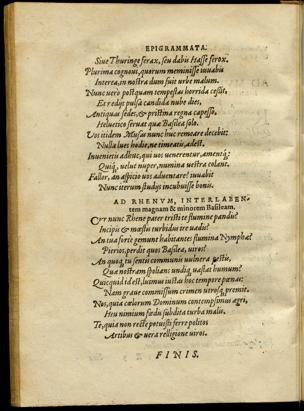 EPIGRAMMATA.
Siue Thuringe ferax, seu dabis Hasse ferox.
Plurima cognoui, quorum meminisse iuuabit
Interea, in nostra dum fuit urbe malum.
Nunc uero postquam tempestas horrida cessit,
Et redijt pulsa candida nube dies,
Antiquas sedes, & pristina regna capesso,
Heluetico seruat quæ Basilea solo.
Vos itidem Musas nunc huc remeare decebit:
Nulla lues hodie, ne timeatis, adest.
Inuenietis adhuc, qui uos uenerentur, amentq́;
Quiq́;, uelut nuper, numina uestra colant.
Fallor, an aspicio uos aduentare? iuuabit
Nunc iterum studijs incubuisse bonis.
AD RHENVM, INTERLABEN-
tem magnam & minorem Basileam.
Cur nunc Rhene pater tristi te flumine pandis?
Incipis & mœstus turbidus ire uadis?
An tua forte gemunt habitantes flumina Nymphæ?
Pierios, perdit quos Basilea, uiros?
An quoq́; tu sentis communis uulnera pestis,
Qua nostram spolians undiq́; uastat humum?
Quicquid id est, luimus iustas hoc tempore pœnas:
Nam graue commissum crimen utroq́; premit.
Nos, quia cælorum Dominum contempsimus ægri,
Heu nimium fœdu subdita turba malis.
Te, quia non recte potuisti ferre politos
Artibus & uera relligione uiros.
FINIS.